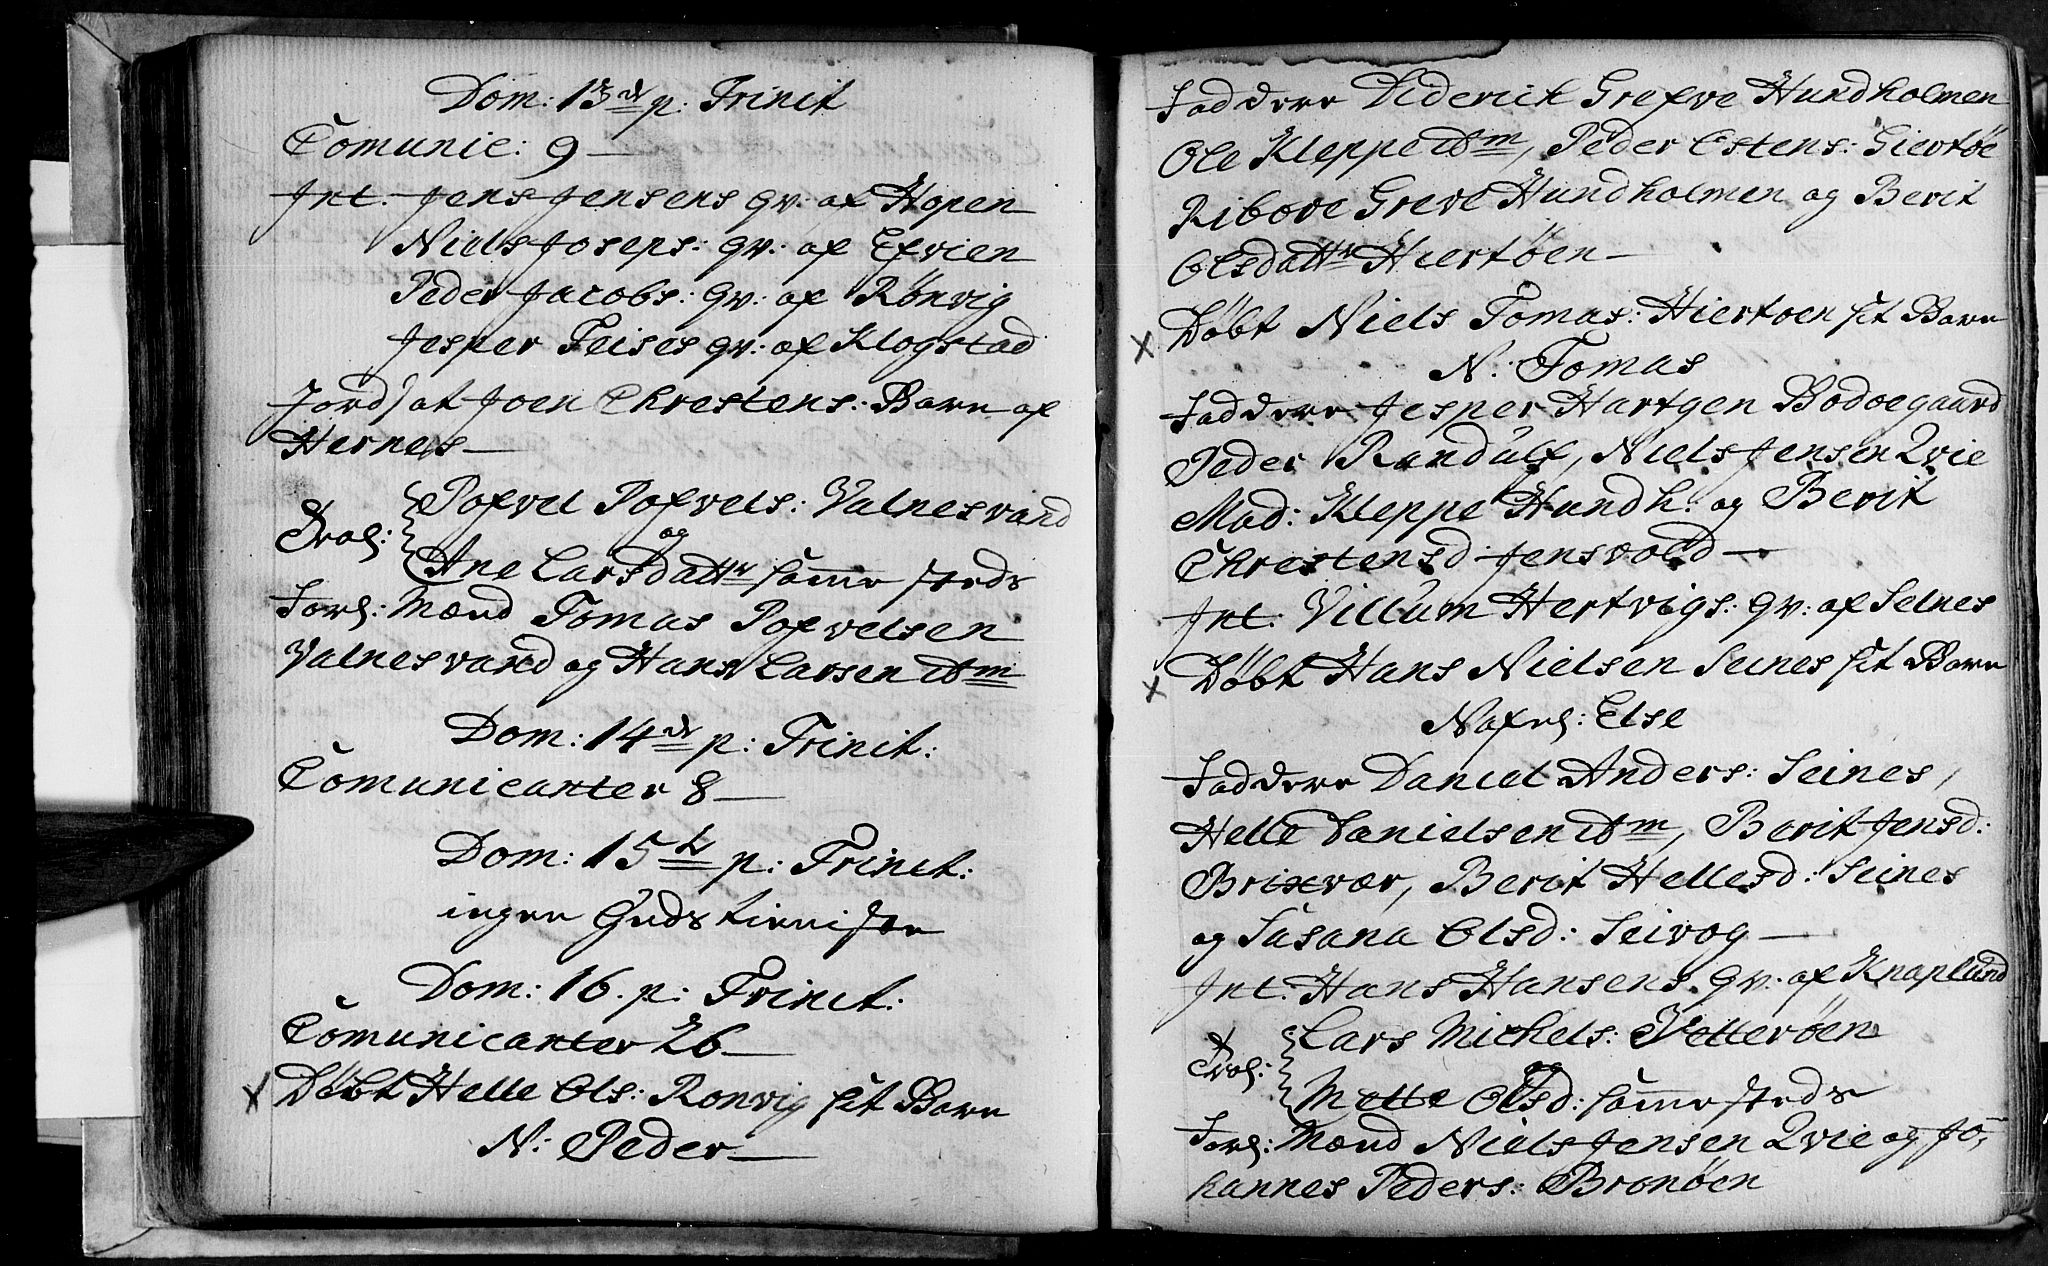 Dom: 13de p: Trinit
Comunic: 9 —
Int. Jens Jensens qv: af Hopen
Niels Joseps: qv: af Efvien
Peder Jacobs: qv: af Rönvig
Jesper Teises qv: af Klogstad
Jords: at Joen Chrestens: Barn af
Hernes —
Trol: Pofvel Pofvels: Valnesvand
og
Ane Larsdattr samme steds
Forl: Mænd Tomas Pofvelsen
Valnesvand og Hans Larsen ibm
Dom: 14de p: Trinit:
Comunicanter 8 —
Dom: 15te p: Trinit:
ingen Gudstienisten
Dom: 16. p: Trinit:
Comunicanter 26 —
x Döbt Helle Ols: Ronvig sit Barn
N: Peder —
Faddere Diderich Grefve Hundholmen
Ole Kleppe ibm, Peder Ostens: Giertöe
Ribore Greve Hundholmen og Berit
Olsdattr Hiertöen —
x Döbt Niels Tomas: Hiertoen sit Barn
N: Tomas
Faddere Jesper Hartgen Bodoegaard
Peder Randulf, Niels Jensen Qvie
Mad: Kleppe Hundh: og Berit
Chrestensd Jensvold —
Int. Villum Hertvigs: qv: af Selnes
x Döbt Hans Nielsen Seines sit Barn
Nafnl: Else
Faddere Daniel Anders: Seines,
Helle Danielsen ibm, Berit Jensd:
Brixvær, Berit Hellesd: Seines
og Susana Olsd: Seivog —
Int. Hans Hansens qv: af Knaplund
Trol: Lars Michels: Vetteröen
og
Mette Olsd: samme steds
Forl: Mænd Niels Jensen Qvie og Jo-
hannes Peders: Bronöen